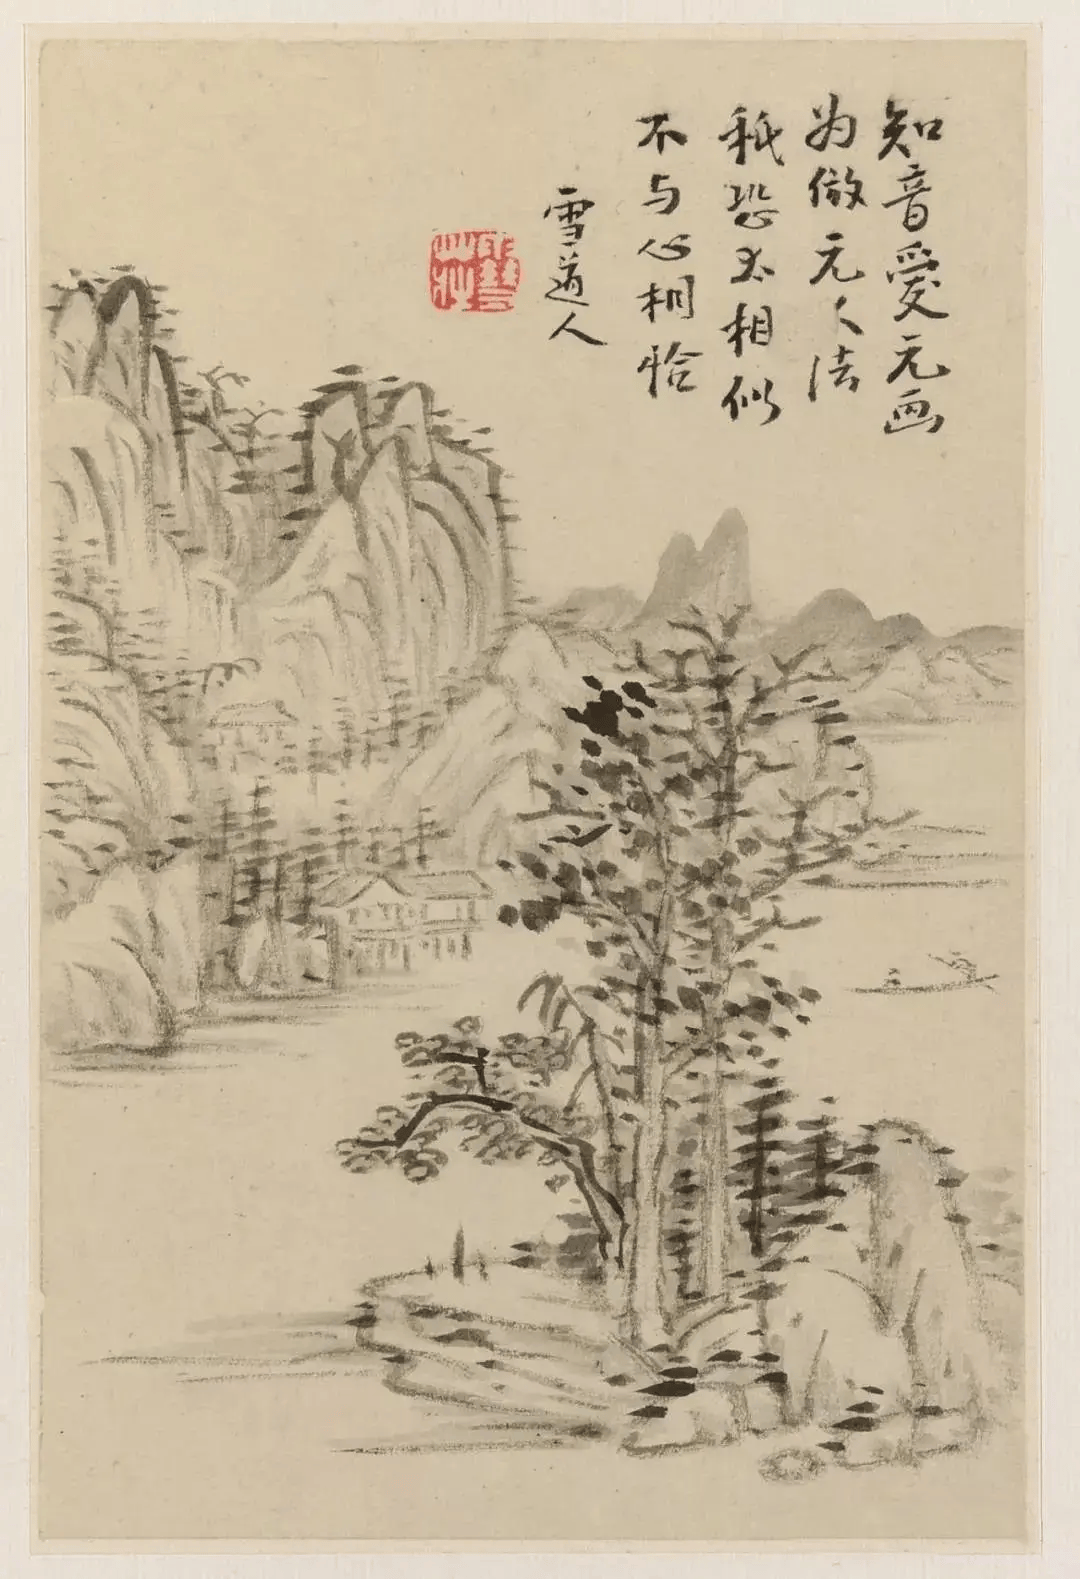 知音爱元画
为仿元人法
秖恐太相似
不与心相恰
雪道人